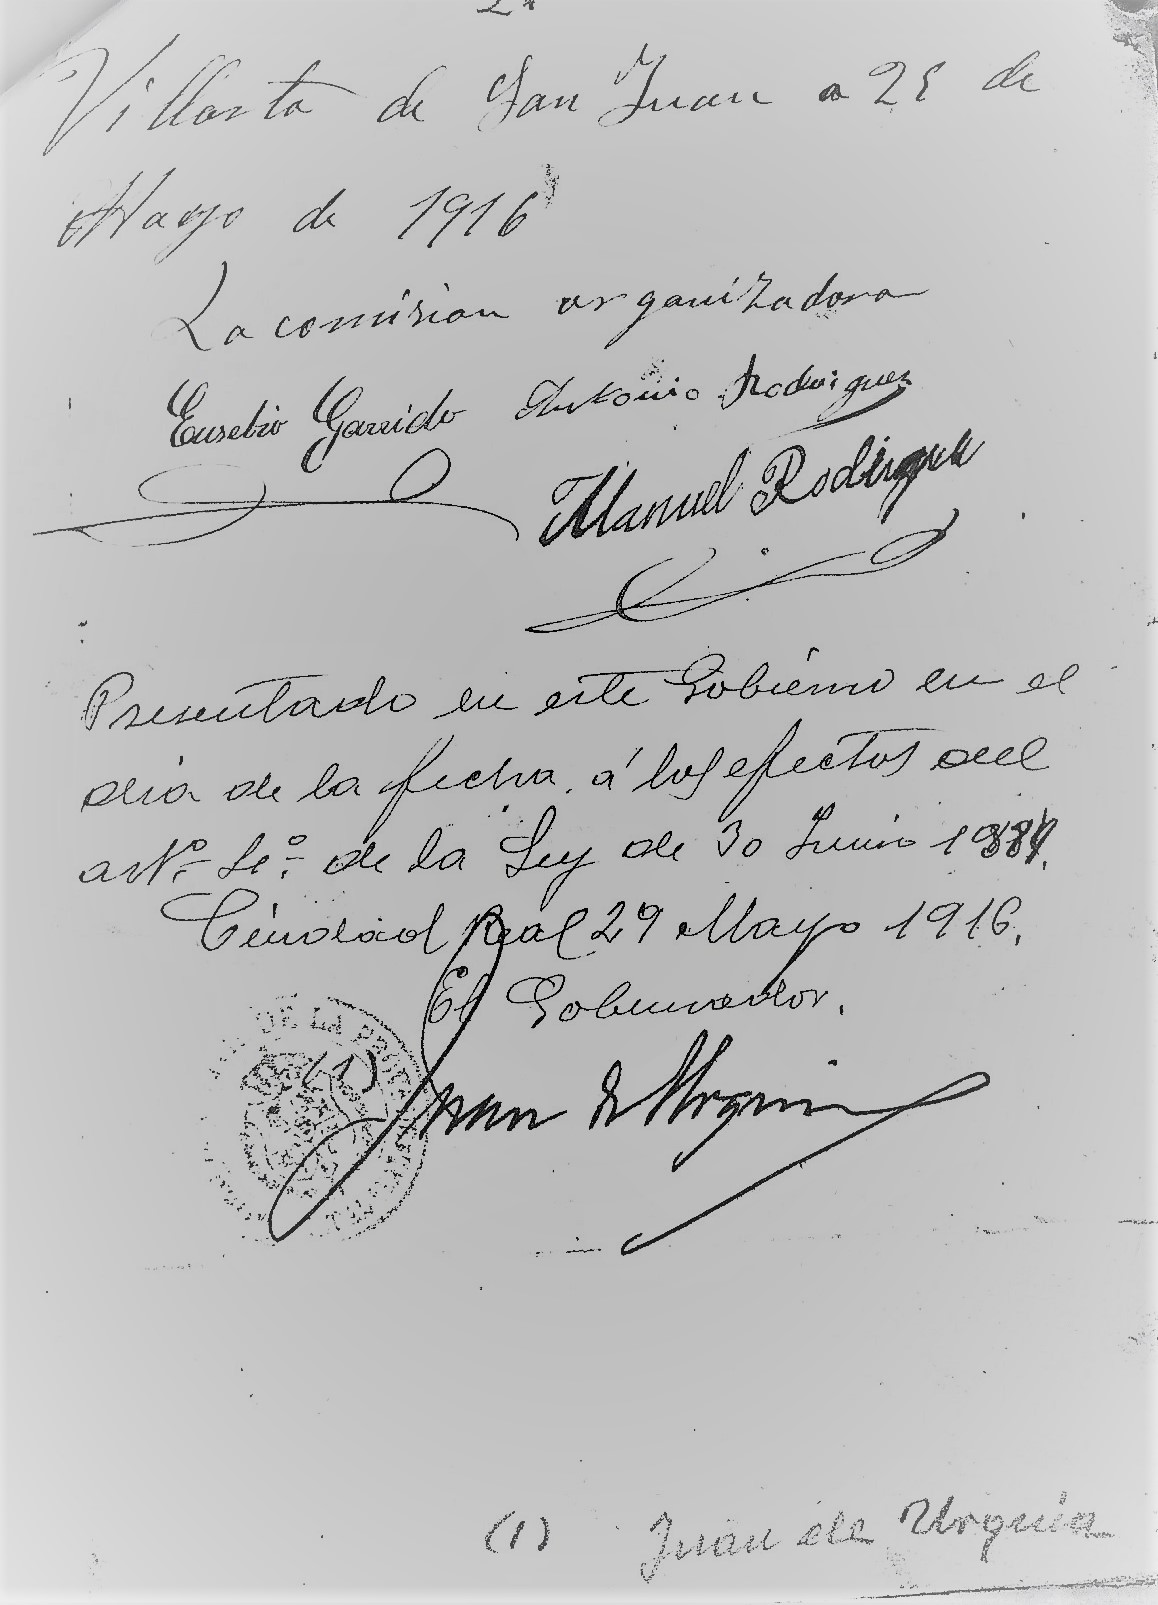 Villarta de San Juan a 25 de
Mayo de 1916
La comision organizadora
Eusebio Garrido Antonio Rodriguez
Manuel Rodriguez
Presentado en este Gobierno en el
dia de la fecha, á los efectos del
artº 4º de la Ley de 30 Junio 1887.
Ciudad Real 29 Mayo 1916.
El Gobernador.
DE LA PRO
(1)
Juan de Urquia
(1) Juan de Urquia